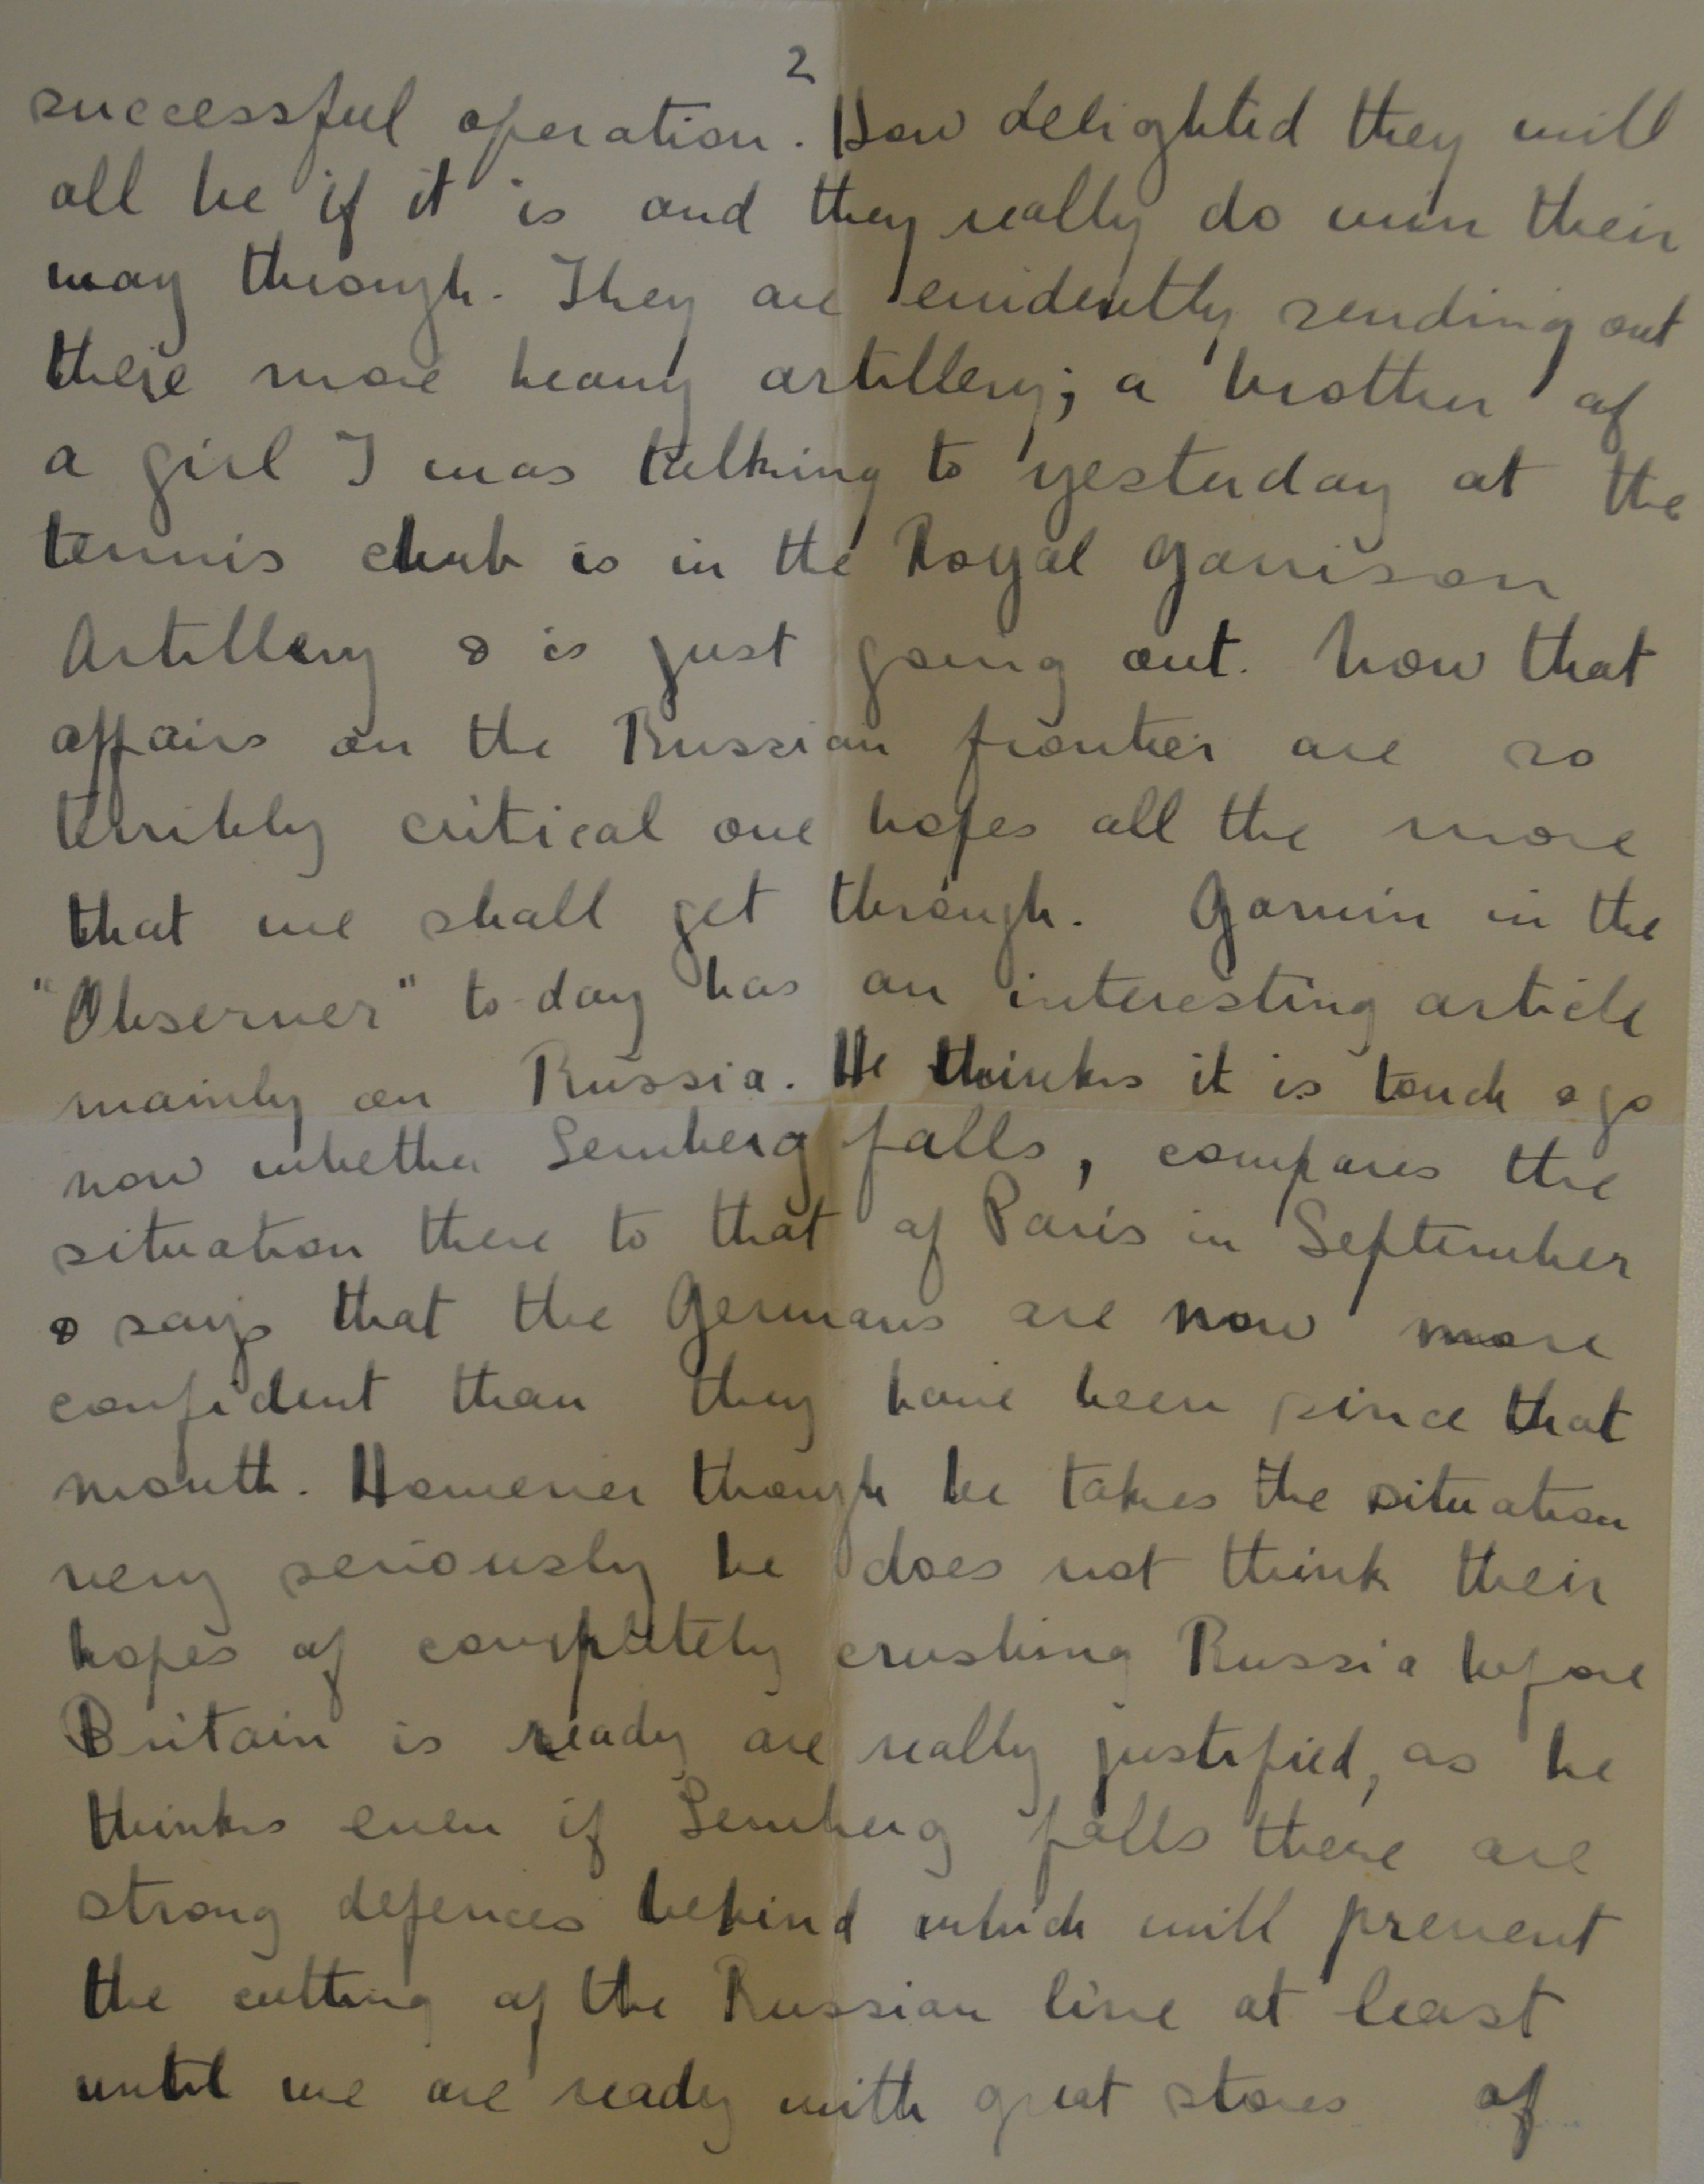 2
successful operation. How delighted they will
all be if it is and they really do win their
way through. They are evidently sending out
there more heavy artillery; a brother of
a girl I was talking to yesterday at the
tennis club is in the Royal Garrison
Artillery & is just going out. Now that
affairs on the Russian frontier are so
terribly critical one hopes all the more
that we shall get through. Garvin in the
"Observer" to-day has an interesting article
mainly on Russia. He thinks it is touch & go
now whether Lemberg falls, compares the
situation there to that of Paris in September
& says that the Germans are now more
confident than they have been since that
month. However though he takes the situation
very seriously he does not think their
hopes of completely crushing Russia before
Britain is ready are really justified, as he
thinks even if Lemberg falls there are
strong defences behind which will prevent
the cutting of the Russian line at least
until we are ready with great stores of